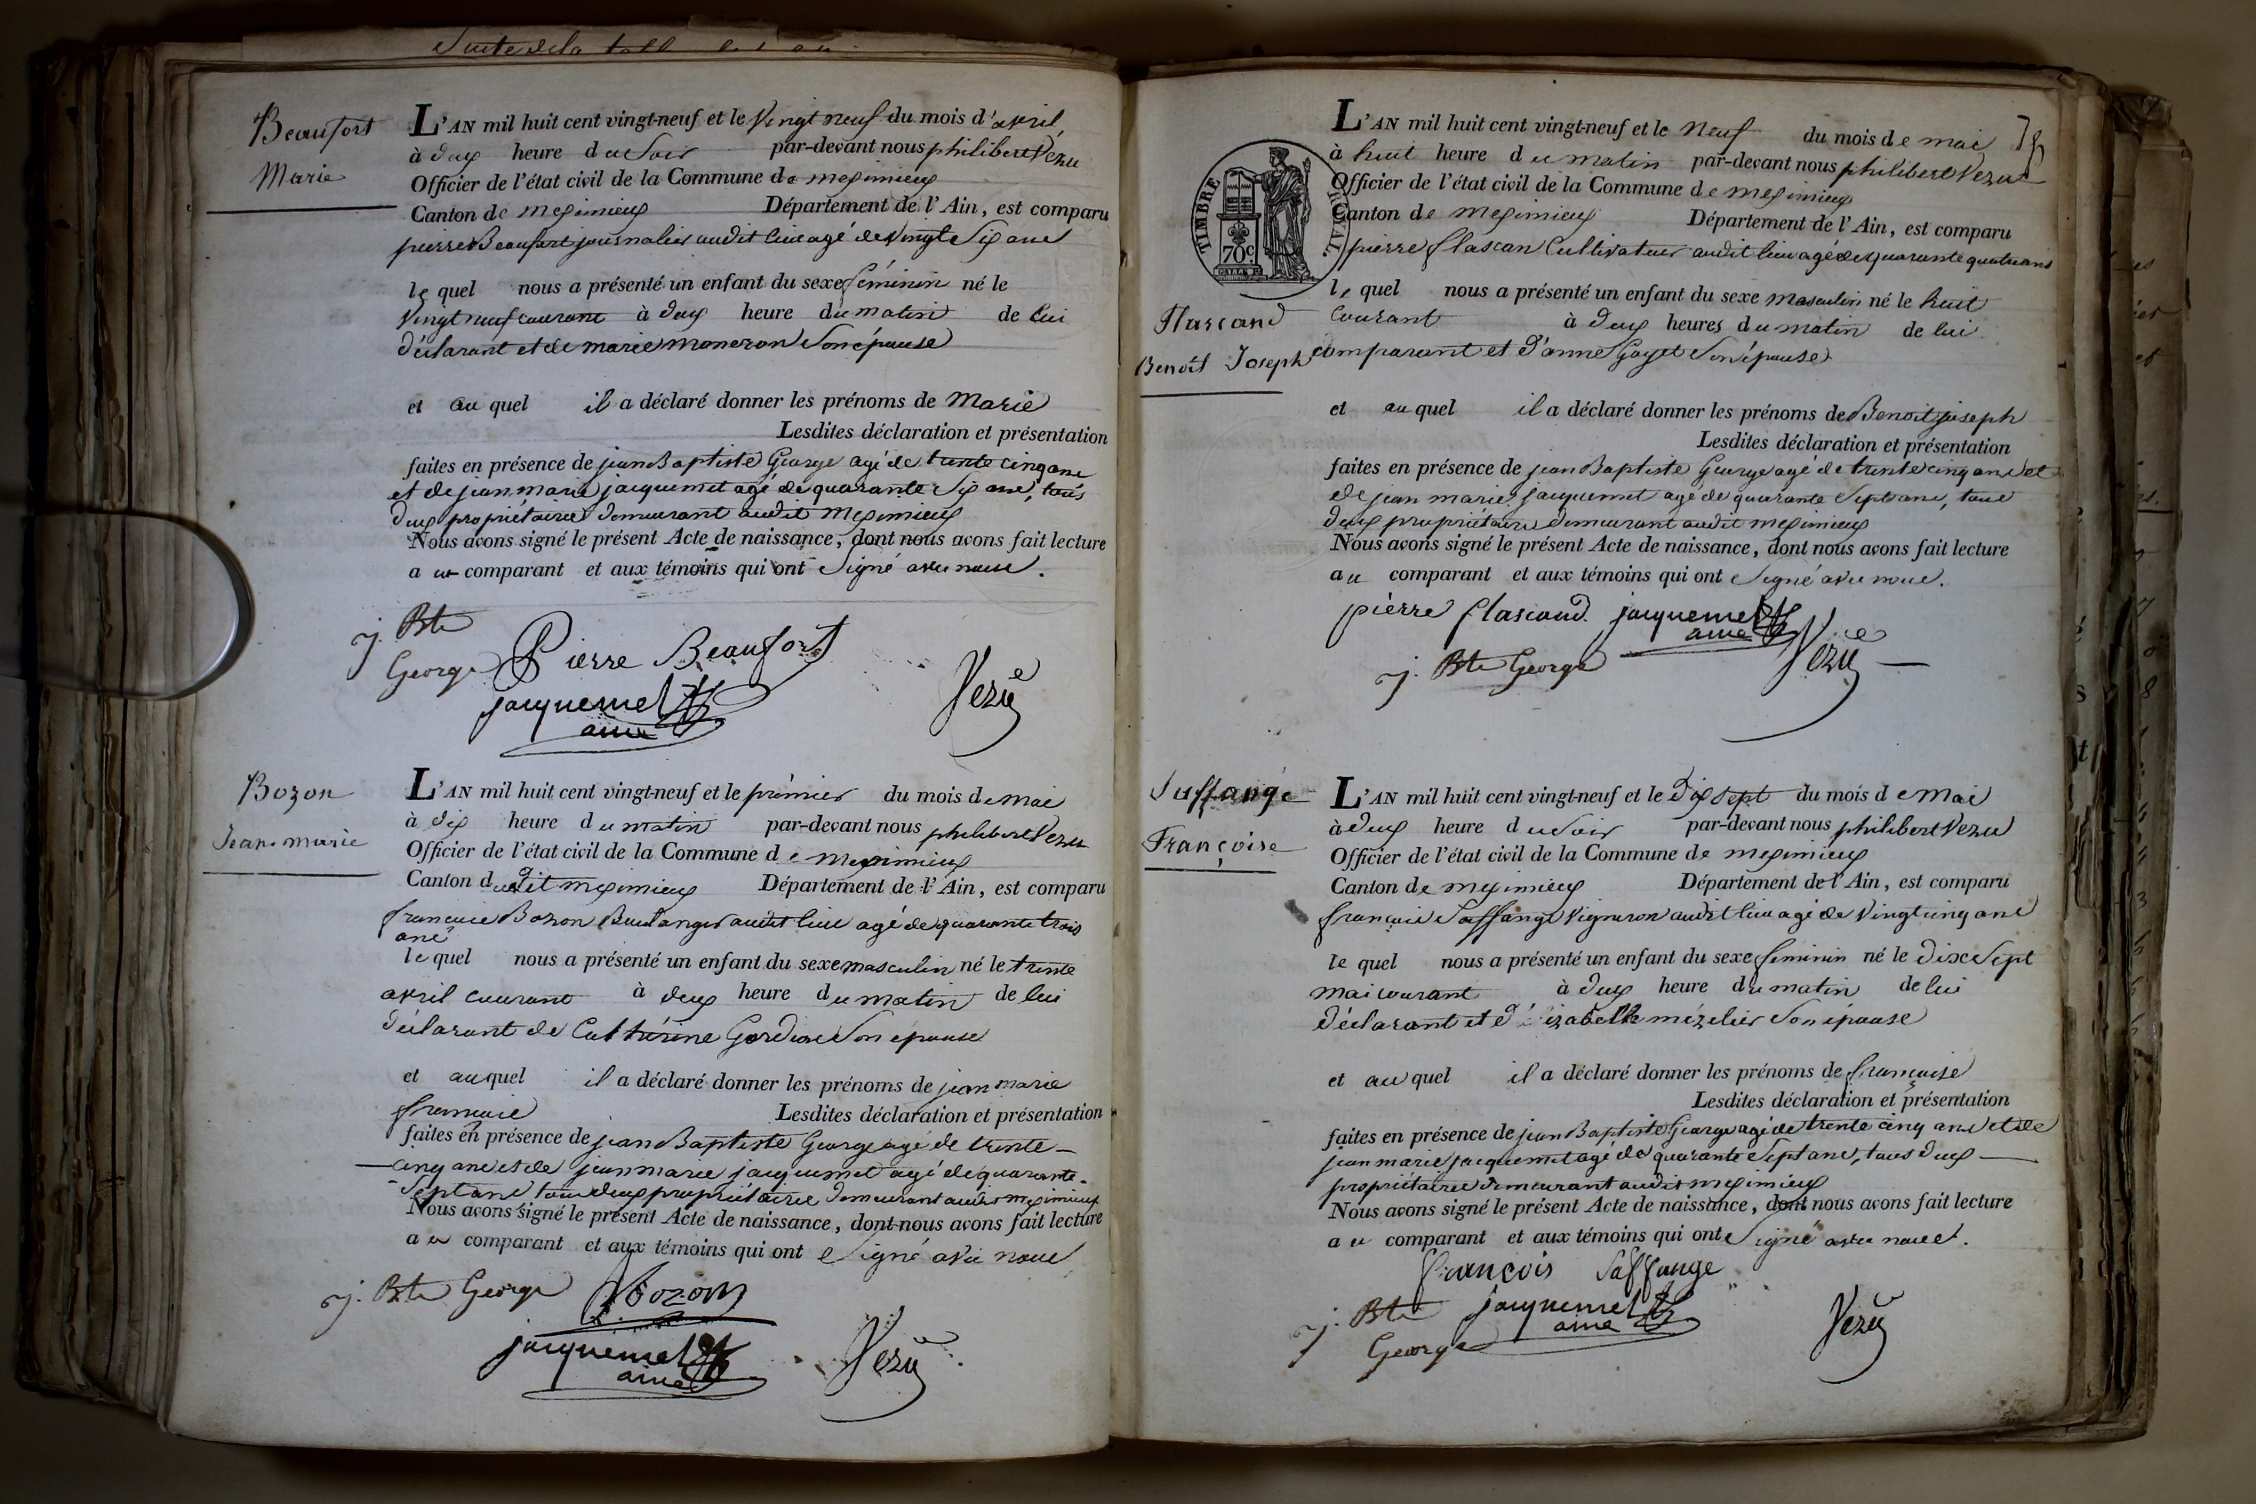 Suite de la
Beaufort
Marie
L'AN mil huit cent vingt-neuf et le Vingt neuf du mois d'avril
à deux heure du Soir par-devant nous philibert Vezu
Officier de l'état civil de la Commune de meximieux
Canton de meximieux Département de l'Ain, est comparu
pierre Beaufort journalier audit lieu agé de Vingt Six ans
le quel nous a présenté un enfant du sexe féminin né le
Vingt neuf courant à deux heure du matin de lui
déclarant et de marie moneron Son épouse
et au quel il a déclaré donner les prénoms de Marie
Lesdites déclaration et présentation
faites en présence de jean Baptiste George agé de trente cinq ans
et de jean marie jacquemet agé de quarante Six ans, tous
deux propriétaires demeurant audit Meximieux
Nous avons signé le présent Acte de naissance, dont nous avons fait lecture
au comparant et aux témoins qui ont Signé avec nous.
j. Bte
George Pierre Beaufort
jacquemet
ainé
Vezu
Bozon
Jean marie
L'AN mil huit cent vingt-neuf et le prémier du mois de mai
à dix heure du matin par-devant nous philibert Vezu
Officier de l'état civil de la Commune de meximieux
Canton dudit meximieux Département de l'Ain, est comparu
francois Bozon Boulanger audit lieu agé de quarante trois
ans
le quel nous a présenté un enfant du sexe masculin né le trente
avril courant à deux heure du matin de lui
déclarant de Cathérine Gordion Son épouse
et au quel il a déclaré donner les prénoms de jean marie
francois Lesdites déclaration et présentation
faites en présence de jean Baptiste George agé de trente
cinq ans et de jean marie jacquemet agé de quarante
Sept ans tous deux propriétaires demeurant audit meximieux
Nous avons signé le présent Acte de naissance, dont nous avons fait lecture
au comparant et aux témoins qui ont Signé avec nous
j. Bte George Bozon
jacquemet
ainé
Vezu
TIMBRE ROYAL.
70c.
L'AN mil huit cent vingt-neuf et le Neuf du mois de mai
à huit heure du matin par-devant nous philibert Vezu
Officier de l'état civil de la Commune de meximieux
Canton de meximieux Département de l'Ain, est comparu
pierre flascan Cultivateur audit lieu agé de quarante quatre ans
le quel nous a présenté un enfant du sexe masculin né le huit
Courant à deux heures du matin de lui
Flascand
Benoît Joseph
comparant et d'anne Goyet Son épouse
et au quel il a déclaré donner les prénoms de Benoit joseph
Lesdites déclaration et présentation
faites en présence de jean Baptiste George agé de trente cinq ans et
de jean marie jacquemet agé de quarante Sept ans, tous
deux propriétaires demeurant audit meximieux
Nous avons signé le présent Acte de naissance, dont nous avons fait lecture
au comparant et aux témoins qui ont Signé avec nous.
pièrre flascand. jacquemet
ainé
Vezu
j. Bte George
Suffange
Françoise
L'AN mil huit cent vingt-neuf et le Dix Sept du mois de Mai
à deux heure du Soir par-devant nous philibert Vezu
Officier de l'état civil de la Commune de meximieux
Canton de meximieux Département de l'Ain, est comparu
francois Saffange Vigneron audit lieu agé de Vingt cinq ans
le quel nous a présenté un enfant du sexe feminin né le dix Sept
mai courant à deux heure du matin de lui
déclarant et d'Elizabeth mézelier Son épouse
et au quel il a déclaré donner les prénoms de françoise
Lesdites déclaration et présentation
faites en présence de jean Baptiste George agé de trente cinq ans et de
jean marie jacquemet agé de quarante Sept ans, tous deux
propriétaires demeurant audit meximieux
Nous avons signé le présent Acte de naissance, dont nous avons fait lecture
au comparant et aux témoins qui ont Signé avec nous.
francois Saffange
j. Bte jacquemet
George ainé
Vezu